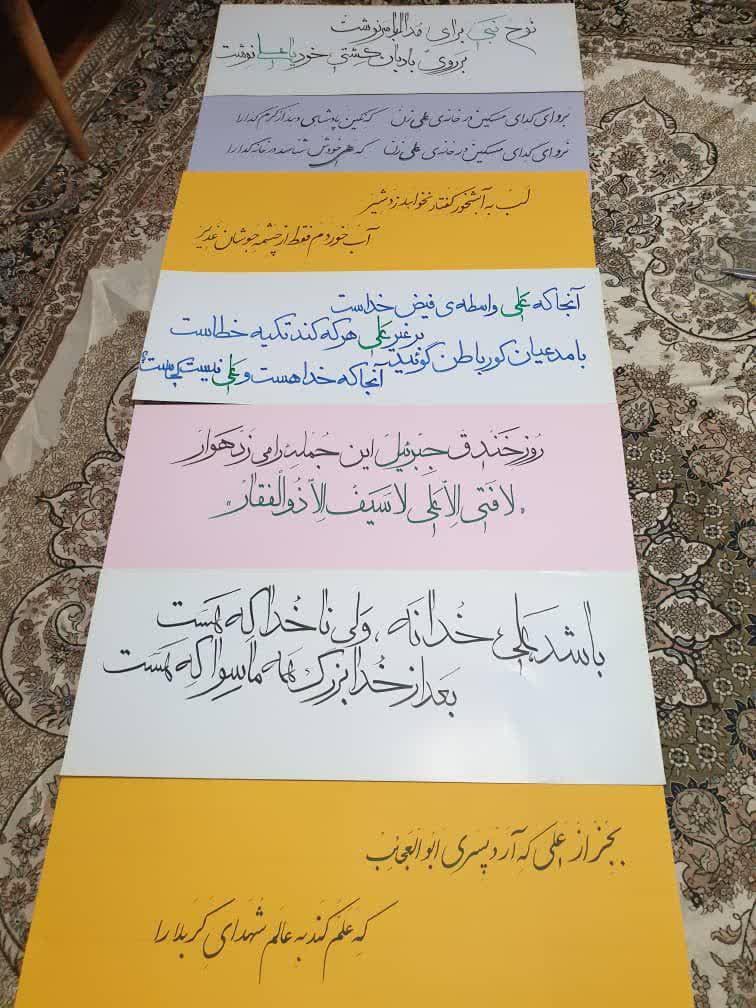 نوح نبی برای مدال‌ها نوشت
بر روی بادبان کشتی خود یا علی نوشت
برو ای گدای مسکین در خانه‌ی علی زن که نگین پادشاهی دهد از کرم گدا را
نرو ای گدای مسکین در خانه‌ی علی زن که علی خودش شناسد در خانه گدا را
لب به آبشخور کفتار نخواهد زد شیر
آب خوردم فقط از چشمه جوشان غدیر
آنجا که علی واسطه‌ی فیض خداست
بر غیر علی هر که کند تکیه خطاست
با مدعیان کور باطن گوئید
آنجا که خدا هست و علی نیست کجاست؟
روز خندق جبرئیل این جمله را می زد هوار
"لا فتی الا علی لا سیف الا ذوالفقار"
باشد علی خدا نه، ولی ناخدا که هست
بعد از خدا بزرگ همه ماسوا که هست
بجز از علی که آرد پسری ابوالعجائب
که علم کند به عالم شهدای کربلا را